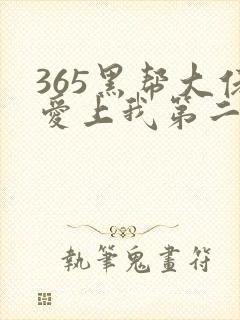 365黑帮大
愛上我第二
執筆鬼畫符